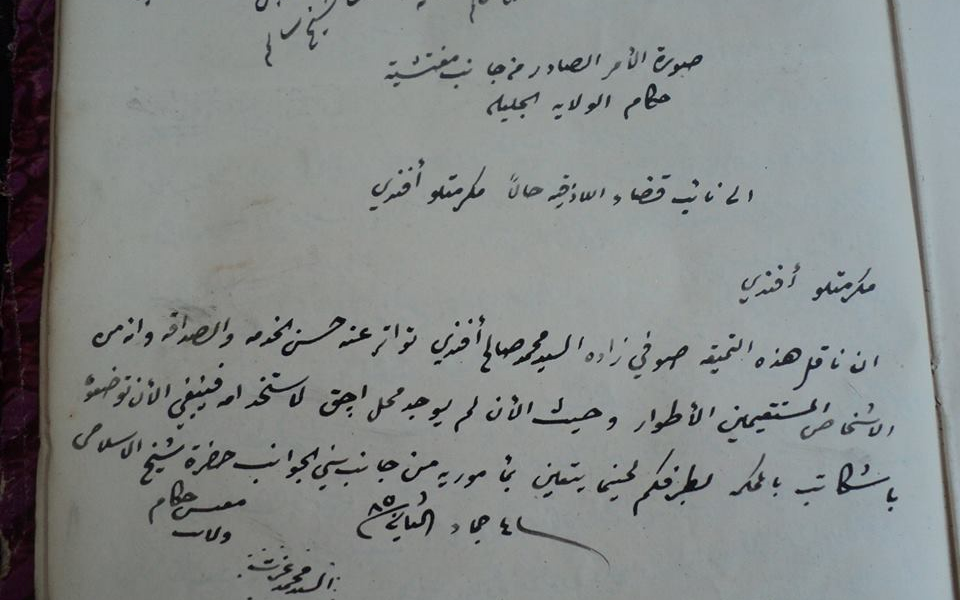 شيخ سالم
صورة الأمر الصادر من جانب مفتشية
حكام الولايه الجليله
الى نائب قضاء اللاذقيه حالاً مكرمتلو أفندي
مكرمتلو أفندي
ان ناقل هذه النميقه صوفي زاده السيد محمد صالح أفندي تواتر عنه حسن الخدمه والصداقه وانه من
الاشخاص المستقيمين الأطوار وحيث الأن لم يوجد محل اجق لاستخدامه فينبغي الأن توضعوه
باشكاتب بالمحكمه لطرفكم لحينما يتعين بمأموريه من جانب سني الجوانب حضرة شيخ الاسلام
في ٤ جماد الثاني ٨٥
مفتش حكام
ولايت
السيد محمد عزت